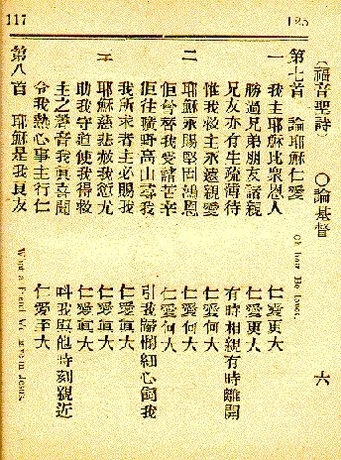 117
125
(福音聖詩) 〇論基督 六
第七首 論耶穌仁愛 Oh how He loves.
一 我主耶穌比衆恩人 仁愛更大
勝過兄弟朋友諸親 仁愛更大
兄友亦有生疏薄待 有時相親有時離開
惟我救主永遠親愛 仁愛何大
二 耶穌永賜堅固鴻恩 仁愛何大
佢曾替我受諸苦辛 仁愛何大
佢往曠野高山尋我 引我歸欄細心飼我
我所求者主必賜我 仁愛眞大
三 耶穌慈悲赦我愆尤 仁愛眞大
助我守道使我得救 仁愛眞大
主之聲音我眞喜聞 叫我與他時刻親近
令我熱心事主行仁 仁愛至大
第八首 耶穌是我良友 What a Friend We have in Jesus